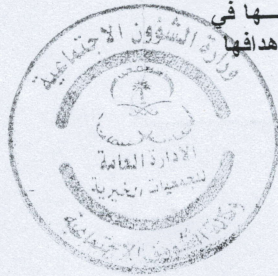 ـها في
هدافها
وزارة الشؤون الاجتماعية
الادارة العامة
للجمعيات الخيرية
وكالة الشؤون الاجتماعية